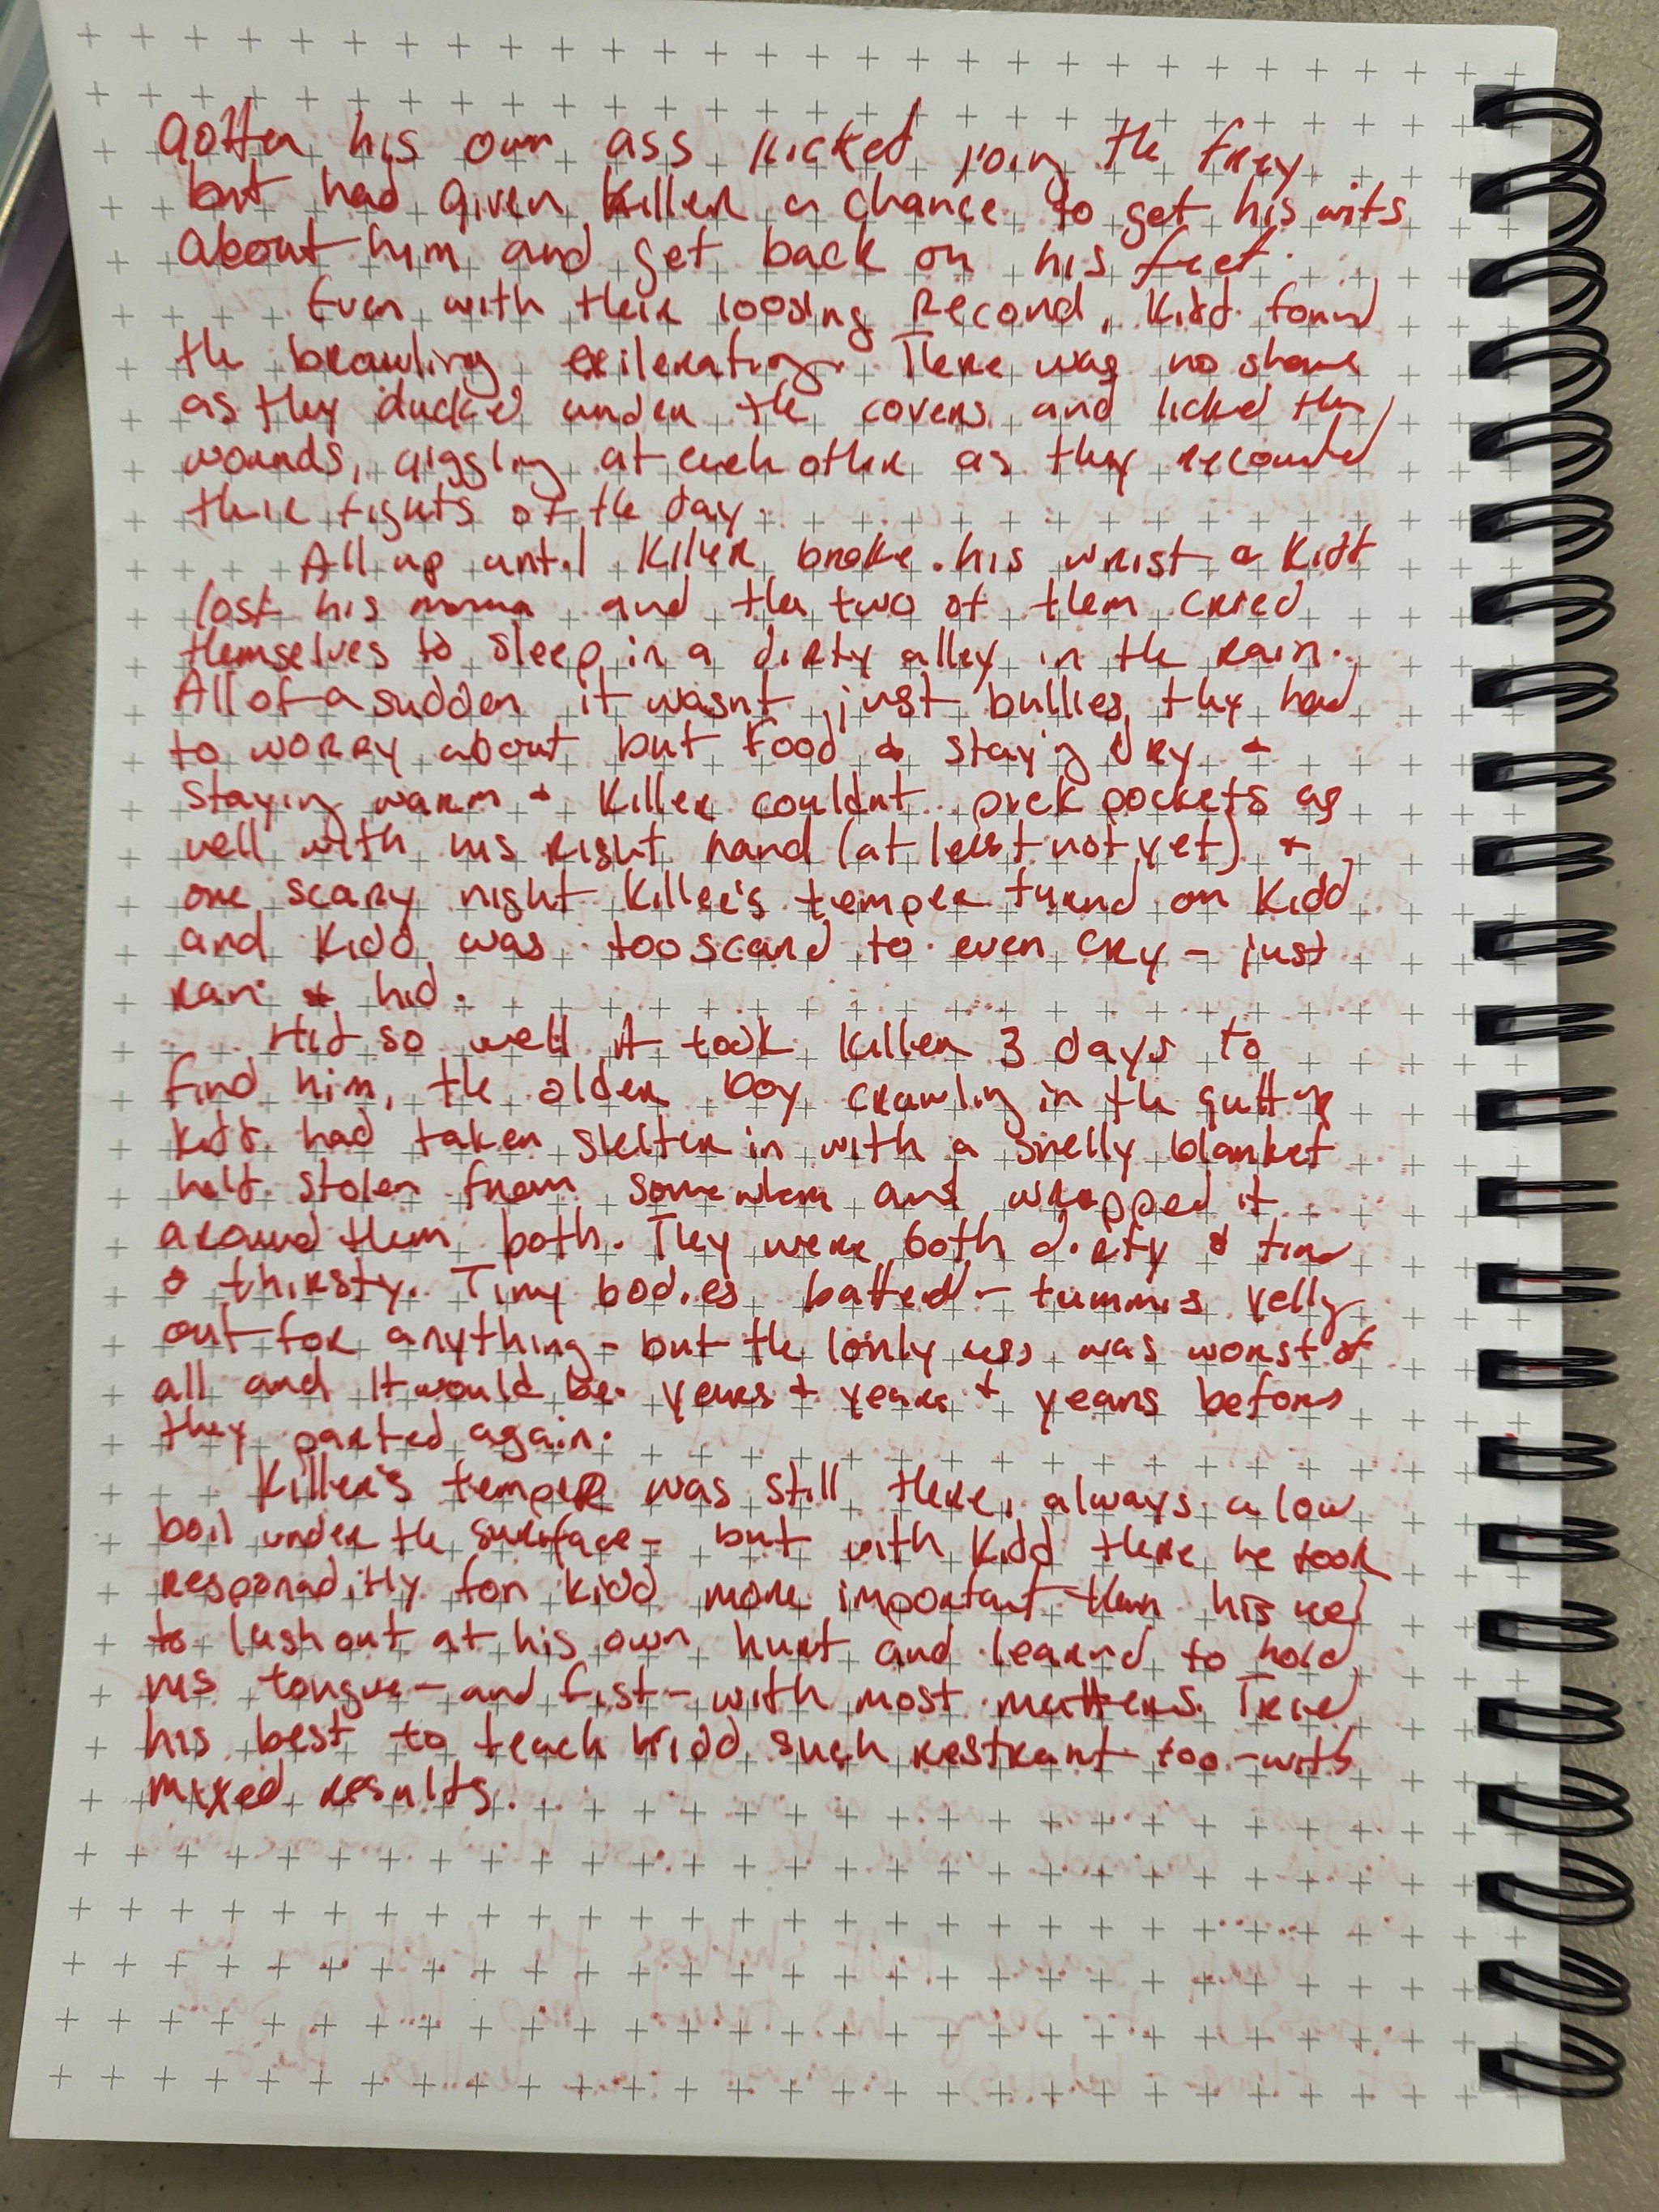 gotten his own ass kicked join the frey
but had given Killer a chance to get his wits
about him and get back on his feet.
Even with their loosing Record, Kidd found
the brawling exilerating. There was no shame
as they ducked under the covers and licked their
wounds, giggling at each other as they recounted
their fights of the day.
All up until Killer broke his wrist & Kidd
lost his momma and the two of them cried
themselves to sleep in a dirty alley in the rain.
All of a sudden it wasnt just bullies they had
to worry about but food & stay'g dry &
staying warm & Killer couldnt pick pockets as
well with his right hand (at least not yet) &
one scary night Killer's temper turnd on Kidd
and Kidd was too scard to even cry - just
ran & hid.
Hid so well it took Killer 3 days to
find him, the older boy crawling in the gutter
Kidd had taken shelter in with a smelly blanket
half stolen from somewhere and wrapped it
around them both. They were both dirty & tired
& thirsty. Tiny bodies batterd - tummies yelling
out for anything - but the lonlyness was worst of
all and it would be years & years & years before
they parted again.
Killer's temper was still there, always a low
boil under the surface - but with Kidd there he took
for Kidd more important then his need
to lash out at his own hurt and learnd to hold
his tongue - and fist - with most matters. Tried
his best to teach Kidd such restrant too - with
mixed results.